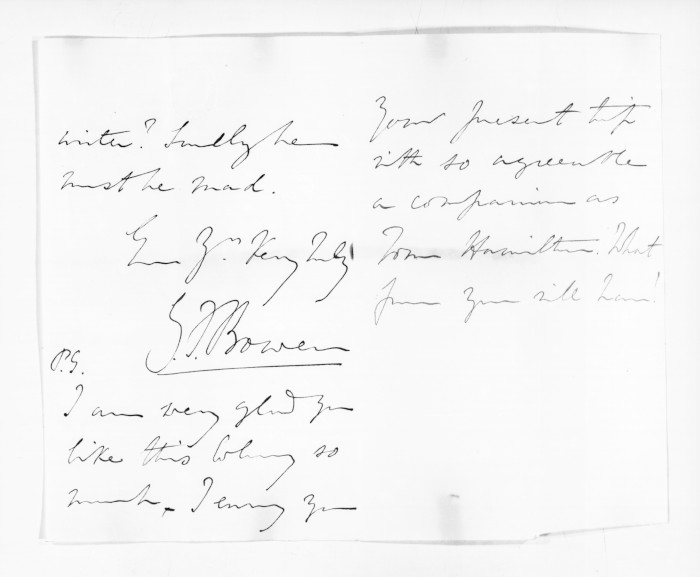 writer? Surely he
must be mad.
Ever Yrs Very Truly
G. F. Bowen
P.S.
I am very glad you
like this Colony so
much. I envy you
your present trip
with so agreeable
a companion as
Tom Hamilton. What
fun you will have!